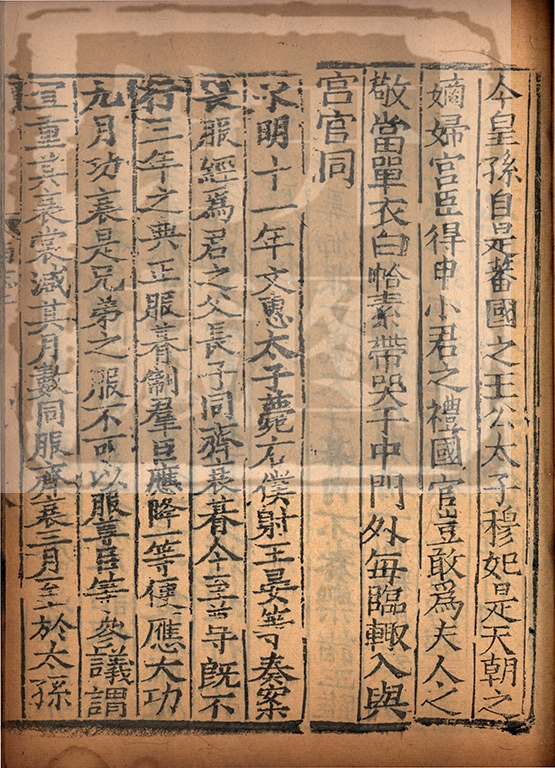 今皇孫自是蕃國之王公太子穆妃是天朝之
嫡婦宮臣得申小君之禮國官豈敢爲夫人之
敬當單衣白帢素帶哭于中門外每臨輒入與
宮官同
永明十一年文惠太子薨右僕射王晏等奏案
喪服經爲君之父長子同齊衰朞今至尊既不
行三年之典正服朞制羣臣應降一等便應大功
九月功衰是兄弟之服不可以服尊臣等參議謂
宜重其衰裳減其月數同服齊衰三月至於太孫